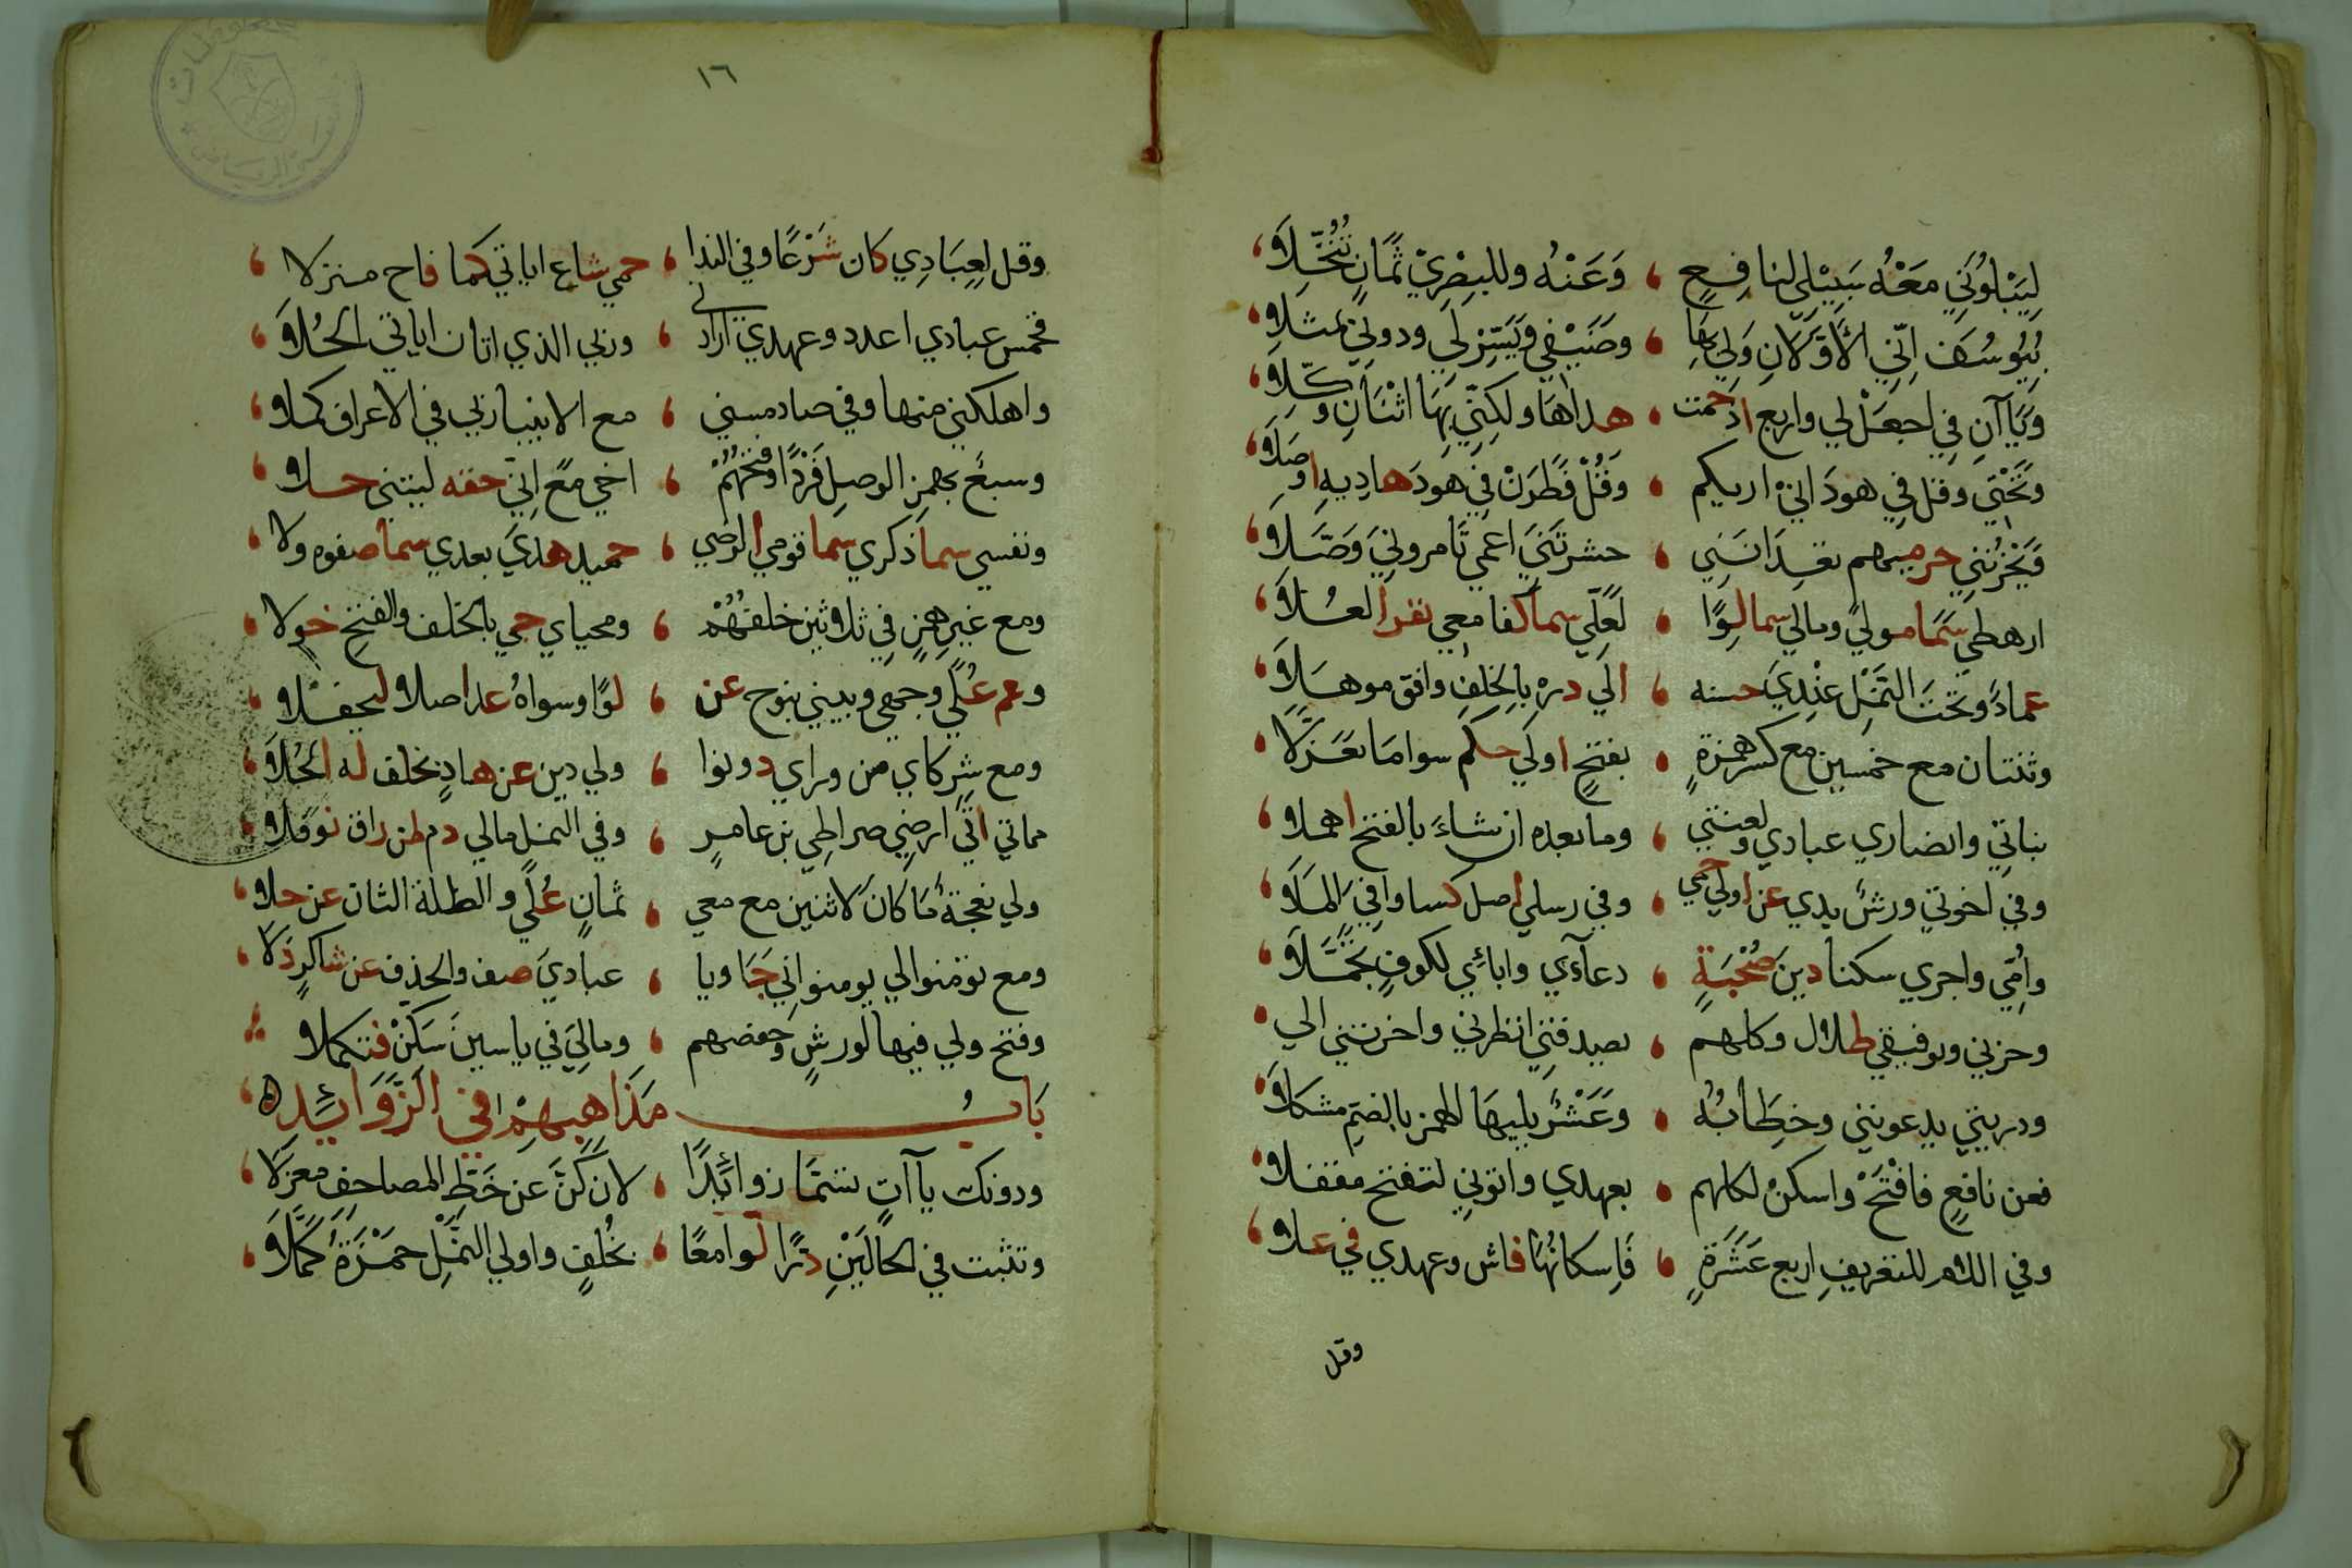 لِيَبْلُوَنِي مَعْهُ سَبِيْلِي لنافِعٍ ، وَعَنْهُ وللبِصْرِيْ ثَمَانٍ تُنُخِّلَا ،
بِيُوسُفَ اِنِّي الأَوَّلَانِ وَلِي بِهَا ، وضَيْفِي وَيَسِّرْ لِي ودونِي تمثلا ،
وَيَاآنِ فِي اجعَلْ لي واربع اذ حمت ، هداها ولكِنِّي بِهَا اثْنَانِ وكِّلَا ،
وَتَحْتِي وقل فِي هودَ انيْ اريكم ، وَقُلْ فَطَرَنْ فِي هودَ هاديهِ اوصَلَا ،
وَيَحْزُنُنِي حرميهم تعِدَانَنِي ، حشرتَنِيَ اعمي تامرونِيَ وَصَّلَا ،
ارهطي سَمَا مولىً ومالي سما لِوًا ، لَعَلِّي سما كفا معِي نفر العُلَا ،
عمادٌ وتحتَ النَّمْلِ عِنْدِيَ حسنه ، الَى درهِ بالخلفِ وافق موهَلَا ،
وثنتان مع خمسين مع كسر همزةٍ ، بفتحٍ اولي حكم سوا ما تعَزَّلَا ،
بناتِي وانصاري عبادي ولعنتي ، وما بعده ان شاءَ بالفتح اهملا ،
وفي اخوتي ورشٌ يدي عن اولي حمي ، وفي رسلي اصل كسا وافِيَ المَلَا ،
وامِّي واجري سكنا دينَ صُحْبَةٍ ، دعآءي واباءي لكوفٍ تجَمَّلَا ،
وحزني وتوفيقي ظلال وكلهم ، يصدقنِي انظرني واخرتني الي ،
وذريتي يدعونني وخِطَابُه ، وعَشْرٌ يليهَا الهمز بالضمِ مشكلَا ،
فعن نافعٍ فافْتَحْ واسكنْ لكلهم ، بعهدي واتوني لتفتح مقفلا ،
وفي اللام للتعريفِ اربع عَشْرَةٍ ، فَاِسكانُهَا فاش وعهدي في علا ،
وقل
١٦
وقل لِعِبَادِي كان شَرْعًا وفي الندا ، حمي شاع اياتي كما فاح منزلا ،
فخمس عبادي اعدد وعهدي ارادني ، وربي الذي اتان اياتي الحُلَا ،
واهلكني منها وفي صاد مسني ، مع الانبيا ربي في الاعراف كملا ،
وسبعٌ بهمزِ الوصلِ فَرْدًا وفتحُهُمْ ، اخي معَ اِنِّي حقه ليتني حلا ،
ونفسي سما ذكري سما قومي الرضي ، حميد هدي بعدي سما صفوه ولا ،
ومع غيرِ همزٍ في ثلاثين خلفُهُمْ ، ومحياي جي بالخلف والفتح خولا ،
وعم عُلًي وجهي وبيتي بنوح عن ، لوًا وسواهُ عد اصلا ليحفلا ،
ومع شركاي من وراي دونوا ، ولي دين عن هادٍ بخلف له الحُلَا ،
مماتي اتي ارضِي صراطِي بن عامرٍ ، وفي النمل مالي دم لمن راق نوفلا ،
ولي نعجةٌ مَا كان لاثنين مع معي ، ثمانٍ عُلًي والظلة الثان عن حلا ،
ومع تؤمنوا لي يومنوا بي جَا ويا ، عباديَ صف والحذف عن شاكرٍ دَلَا ،
وفتح ولي فيها لورشٍ وحفصهم ، ومالِيَ في ياسينَ سَكِّنْ فتكملا
بَابُ مَذَاهِبِهِمْ في الزَّوَائِدِ
ودونك ياآتٍ تسَمَّا زوائِدًا ، لان كُنَّ عن خَطِّ المصاحفِ معزلَا ،
وتثبت في الحَالَيْنِ دُرًّا لوامعًا ، بخُلْفٍ واولي النَّمْلِ حمْزَةُ كَمَّلَا ،